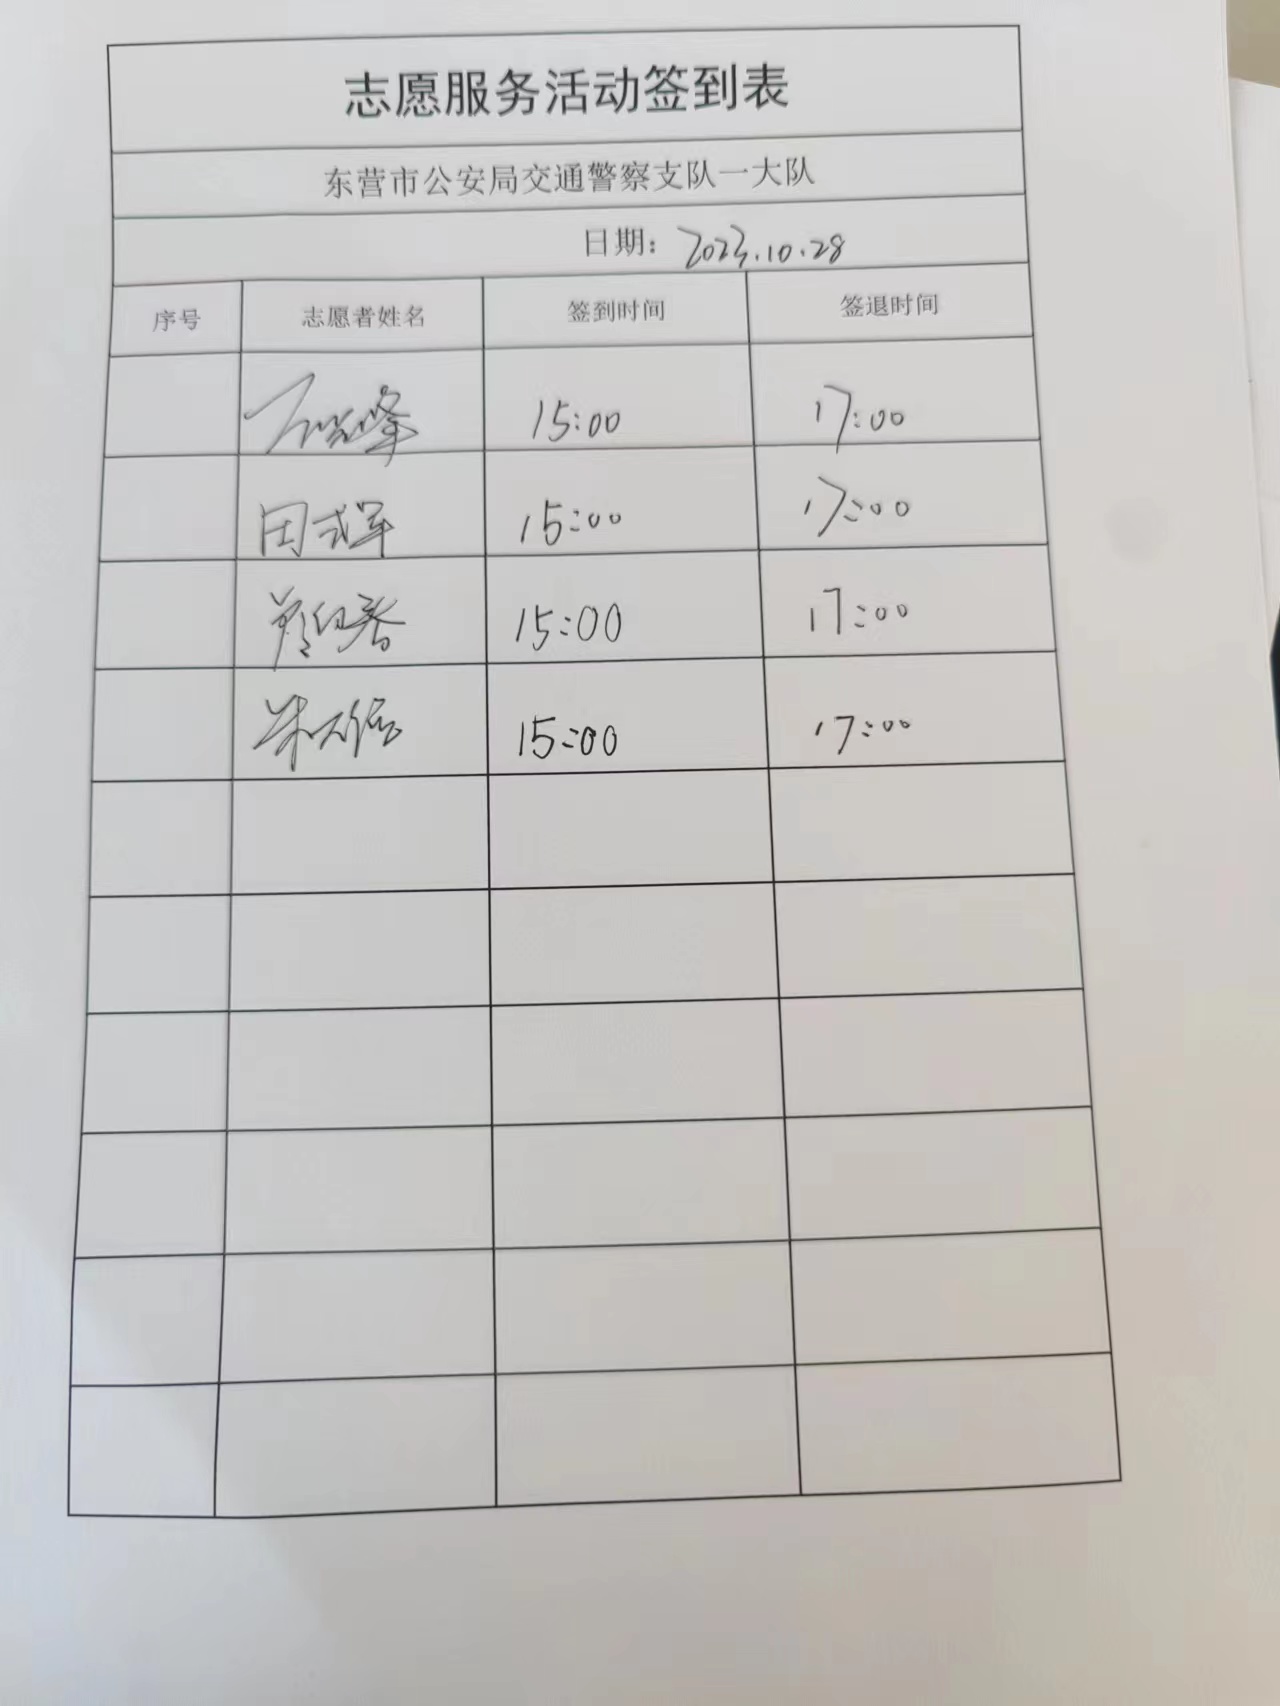 志愿服务活动签到表
东营市公安局交通警察支队一大队
日期：2023.10.28
序号 志愿者姓名 签到时间 签退时间
15:00 17:00
15:00 17:00
15:00 17:00
15:00 17:00